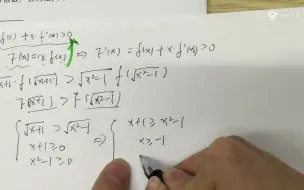 f(x)+x·f'(x)>0
F(x)=x·f(x) ⇒ F'(x)=f(x)+x·f'(x)>0
√x+1 f(√x+1) > √x²-1 f(√x²-1)
F(√x+1) > F(√x²-1)
{ √x+1 > √x²-1
x+1≥0
x²-1≥0
⇒ { x+1≥x²-1
x≥-1